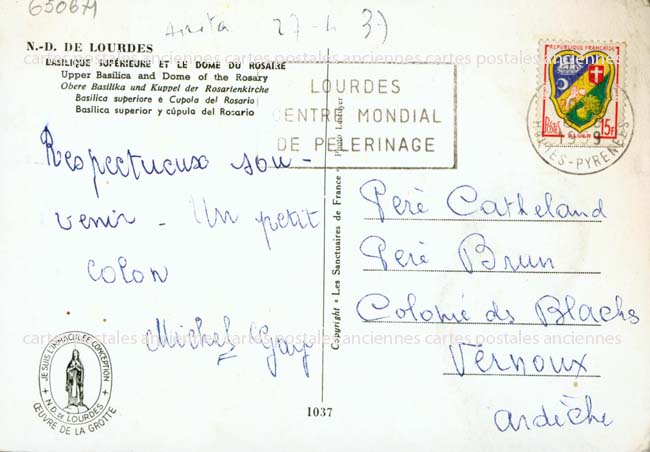 65067
27-4 3)
N.-D. DE LOURDES
BASILIQUE SUPÉRIEURE ET LE DOME DU ROSAIRE
Upper Basilica and Dome of the Rosary
Obere Basilika und Kuppel der Rosarienkirche
Basilica superiore e Cupola del Rosario
Basilica superior y cúpula del Rosario
LOURDES
CENTRE MONDIAL
DE PELERINAGE
REPUBLIQUE FRANÇAISE
POSTES ALGER 15F
HAUTES-PYRENEES
cartes postales anciennes cartes postales anciennes cartes postales anciennes
Respectueux sou-
venir - Un petit
colon
Michel Gay
Copyright « Les Sanctuaires de France » - Photo
Peré Catheland
Peré Brun
Colonie des Blachs
Vernoux
Ardèche
cartes postales anciennes cartes postales anciennes cartes postales anciennes
JE SUIS L'IMMACULEE CONCEPTION
N.D. DE LOURDES
ŒUVRE DE LA GROTTE
1037